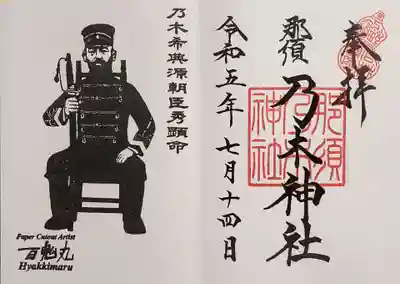 奉拝
那須
乃木神社
那須
乃木
神社
令和五年 七月十四日
乃木希典源朝臣秀顕命
Paper Cutout Artist
百鬼丸
Hyakkimaru